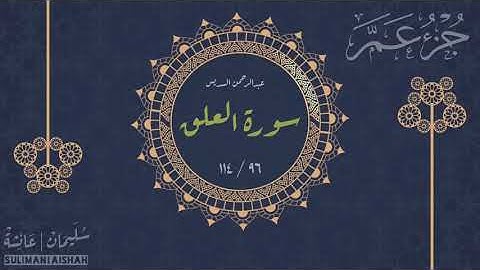 جُزْءُ عَمَّ
عبدالرحمن السديس
سورة العلق
٩٦ / ١١٤
سُلَيمَانْ | عَائِشَةْ
SULIMAN | AISHAH